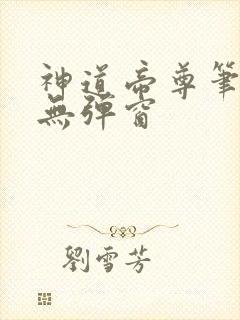 神道帝尊筆
無彈窗
劉雪芳